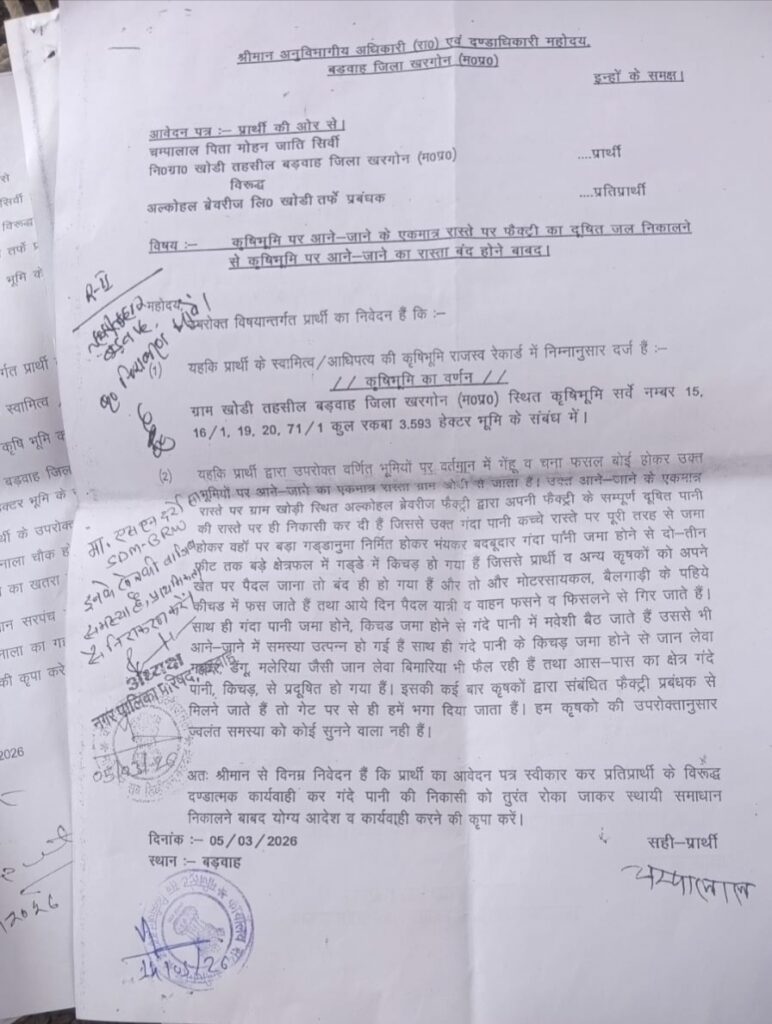 श्रीमान अनुविभागीय अधिकारी (रा0) एवं दण्डाधिकारी महोदय,
बड़वाह जिला खरगोन (म0प्र0)
इन्हों के समक्ष।
आवेदन पत्र :– प्रार्थी की ओर से।
चम्पालाल पिता मोहन जाति सिर्वी
नि0ग्रा0 खोडी तहसील बड़वाह जिला खरगोन (म0प्र0) ....प्रार्थी
विरूद्ध
अल्कोहल ब्रेवरीज लि0 खोडी तर्फे प्रबंधक ....प्रतिप्रार्थी
विषय :– कृषिभूमि पर आने–जाने के एकमात्र रास्ते पर फैक्ट्री का दूषित जल निकालने
से कृषिभूमि पर आने–जाने का रास्ता बंद होने बाबद।
R-II
महोदय,
उपरोक्त विषयान्तर्गत प्रार्थी का निवेदन हैं कि :–
(1)
यहकि प्रार्थी के स्वामित्व/आधिपत्य की कृषिभूमि राजस्व रेकार्ड में निम्नानुसार दर्ज हैं :–
// कृषिभूमि का वर्णन //
ग्राम खोडी तहसील बड़वाह जिला खरगोन (म0प्र0) स्थित कृषिभूमि सर्वे नम्बर 15,
16/1, 19, 20, 71/1 कुल रकबा 3.593 हेक्टर भूमि के संबंध में।
(2) यहकि प्रार्थी द्वारा उपरोक्त वर्णित भूमियों पर वर्तमान में गेंहू व चना फसल बोई होकर उक्त
भूमियों पर आने–जाने का एकमात्र रास्ता ग्राम खोडी से जाता हैं। उक्त आने–जाने के एकमात्र
रास्ते पर ग्राम खोडी स्थित अल्कोहल ब्रेवरीज फैक्ट्री द्वारा अपनी फैक्ट्री के सम्पूर्ण दूषित पानी
की रास्ते पर ही निकासी कर दी हैं जिससे उक्त गंदा पानी कच्चे रास्ते पर पूरी तरह से जमा
होकर वहॉ पर बड़ा गड्डानुमा निर्मित होकर भंयकर बदबूदार गंदा पानी जमा होने से दो–तीन
फीट तक बड़े क्षेत्रफल में गड्डे में किचड़ हो गया हैं जिससे प्रार्थी व अन्य कृषकों को अपने
खेत पर पैदल जाना तो बंद ही हो गया हैं और तो और मोटरसायकल, बैलगाड़ी के पहिये
कीचड में फस जाते हैं तथा आये दिन पैदल यात्री व वाहन फसने व फिसलने से गिर जाते हैं।
साथ ही गंदा पानी जमा होने, किचड जमा होने से गंदे पानी में मवेशी बैठ जाते हैं उससे भी
आने–जाने में समस्या उत्पन्न हो गई हैं साथ ही गंदे पानी के किचड़ जमा होने से जान लेवा
डेंगू, मलेरिया जैसी जान लेवा बिमारिया भी फैल रही हैं तथा आस–पास का क्षेत्र गंदे
पानी, किचड़, से प्रदूषित हो गया हैं। इसकी कई बार कृषकों द्वारा संबंधित फैक्ट्री प्रबंधक से
मिलने जाते हैं तो गेट पर से ही हमें भगा दिया जाता हैं। हम कृषको की उपरोक्तानुसार
ज्वलंत समस्या को कोई सुनने वाला नही हैं।
मा. एस डी
SDM-BRW
समस्या है,
अध्यक्ष
नगर पालिका परिषद, बड़वाह
05/03/26
अतः श्रीमान से विनम्र निवेदन हैं कि प्रार्थी का आवेदन पत्र स्वीकार कर प्रतिप्रार्थी के विरूद्ध
दण्डात्मक कार्यवाही कर गंदे पानी की निकासी को तुरंत रोका जाकर स्थायी समाधान
निकालने बाबद योग्य आदेश व कार्यवाही करने की कृपा करें।
दिनांक :– 05/03/2026
सही–प्रार्थी
स्थान :– बड़वाह
चम्पालाल